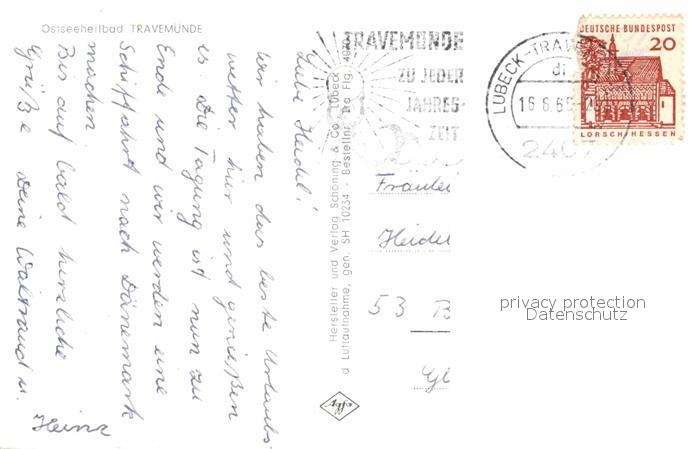 Ostseeheilbad TRAVEMÜNDE
Liebe Heidel!
Wir haben das beste Urlaubs-
wetter hier und genießen
es. Die Tagung ist nun zu
Ende und wir werden eine
Schiffahrt nach Dänemark
machen.
Bis auf bald herzliche
Grüße Deine Waltraud u.
Heinz
Hersteller und Verlag Schöning & Co., Lübeck
Luftaufnahme, gen. SH 10234 - Bestellnr. Tra Flg.
TRAVEMÜNDE
ZU JEDER
JAHRES-
ZEIT
LÜBECK-TRAVEMÜNDE
16.6.66
2407
DEUTSCHE BUNDESPOST
20
LORSCH/HESSEN
Fräulei
Heidel
53 B
Gl
privacy protection
Datenschutz